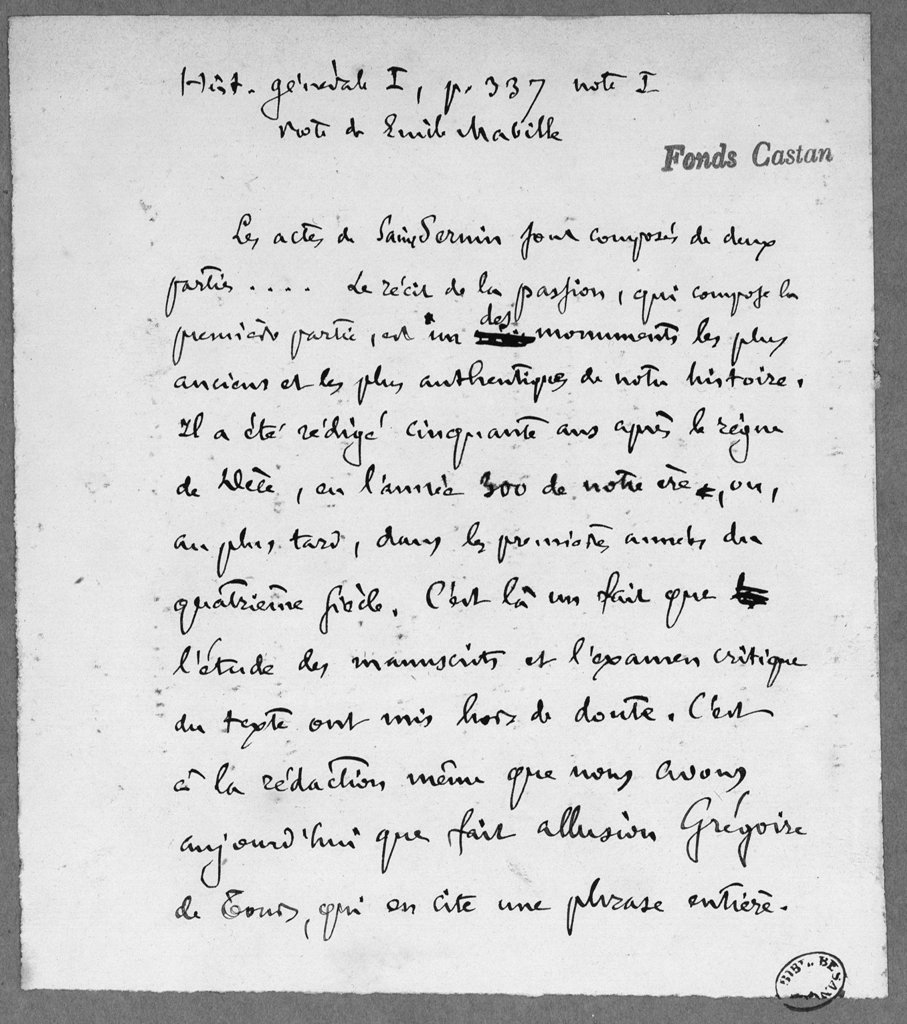 Hist. générale I, p. 337 note I
note de Emile Mabille
Fonds Castan
Les actes de Saint Sernin sont composés de deux
parties .... Le récit de la passion, qui compose la
première partie, est un des monuments les plus
anciens et les plus authentiques de notre histoire.
Il a été rédigé cinquante ans après le règne
de Dèce, en l'année 300 de notre ère, ou,
au plus tard, dans les premières années du
quatrième siècle. C'est là un fait que
l'étude des manuscrits et l'examen critique
du texte ont mis hors de doute. C'est
à la rédaction même que nous avons
aujourd'hui que fait allusion Grégoire
de Tours, qui en cite une phrase entière.
BIBL. BESAN